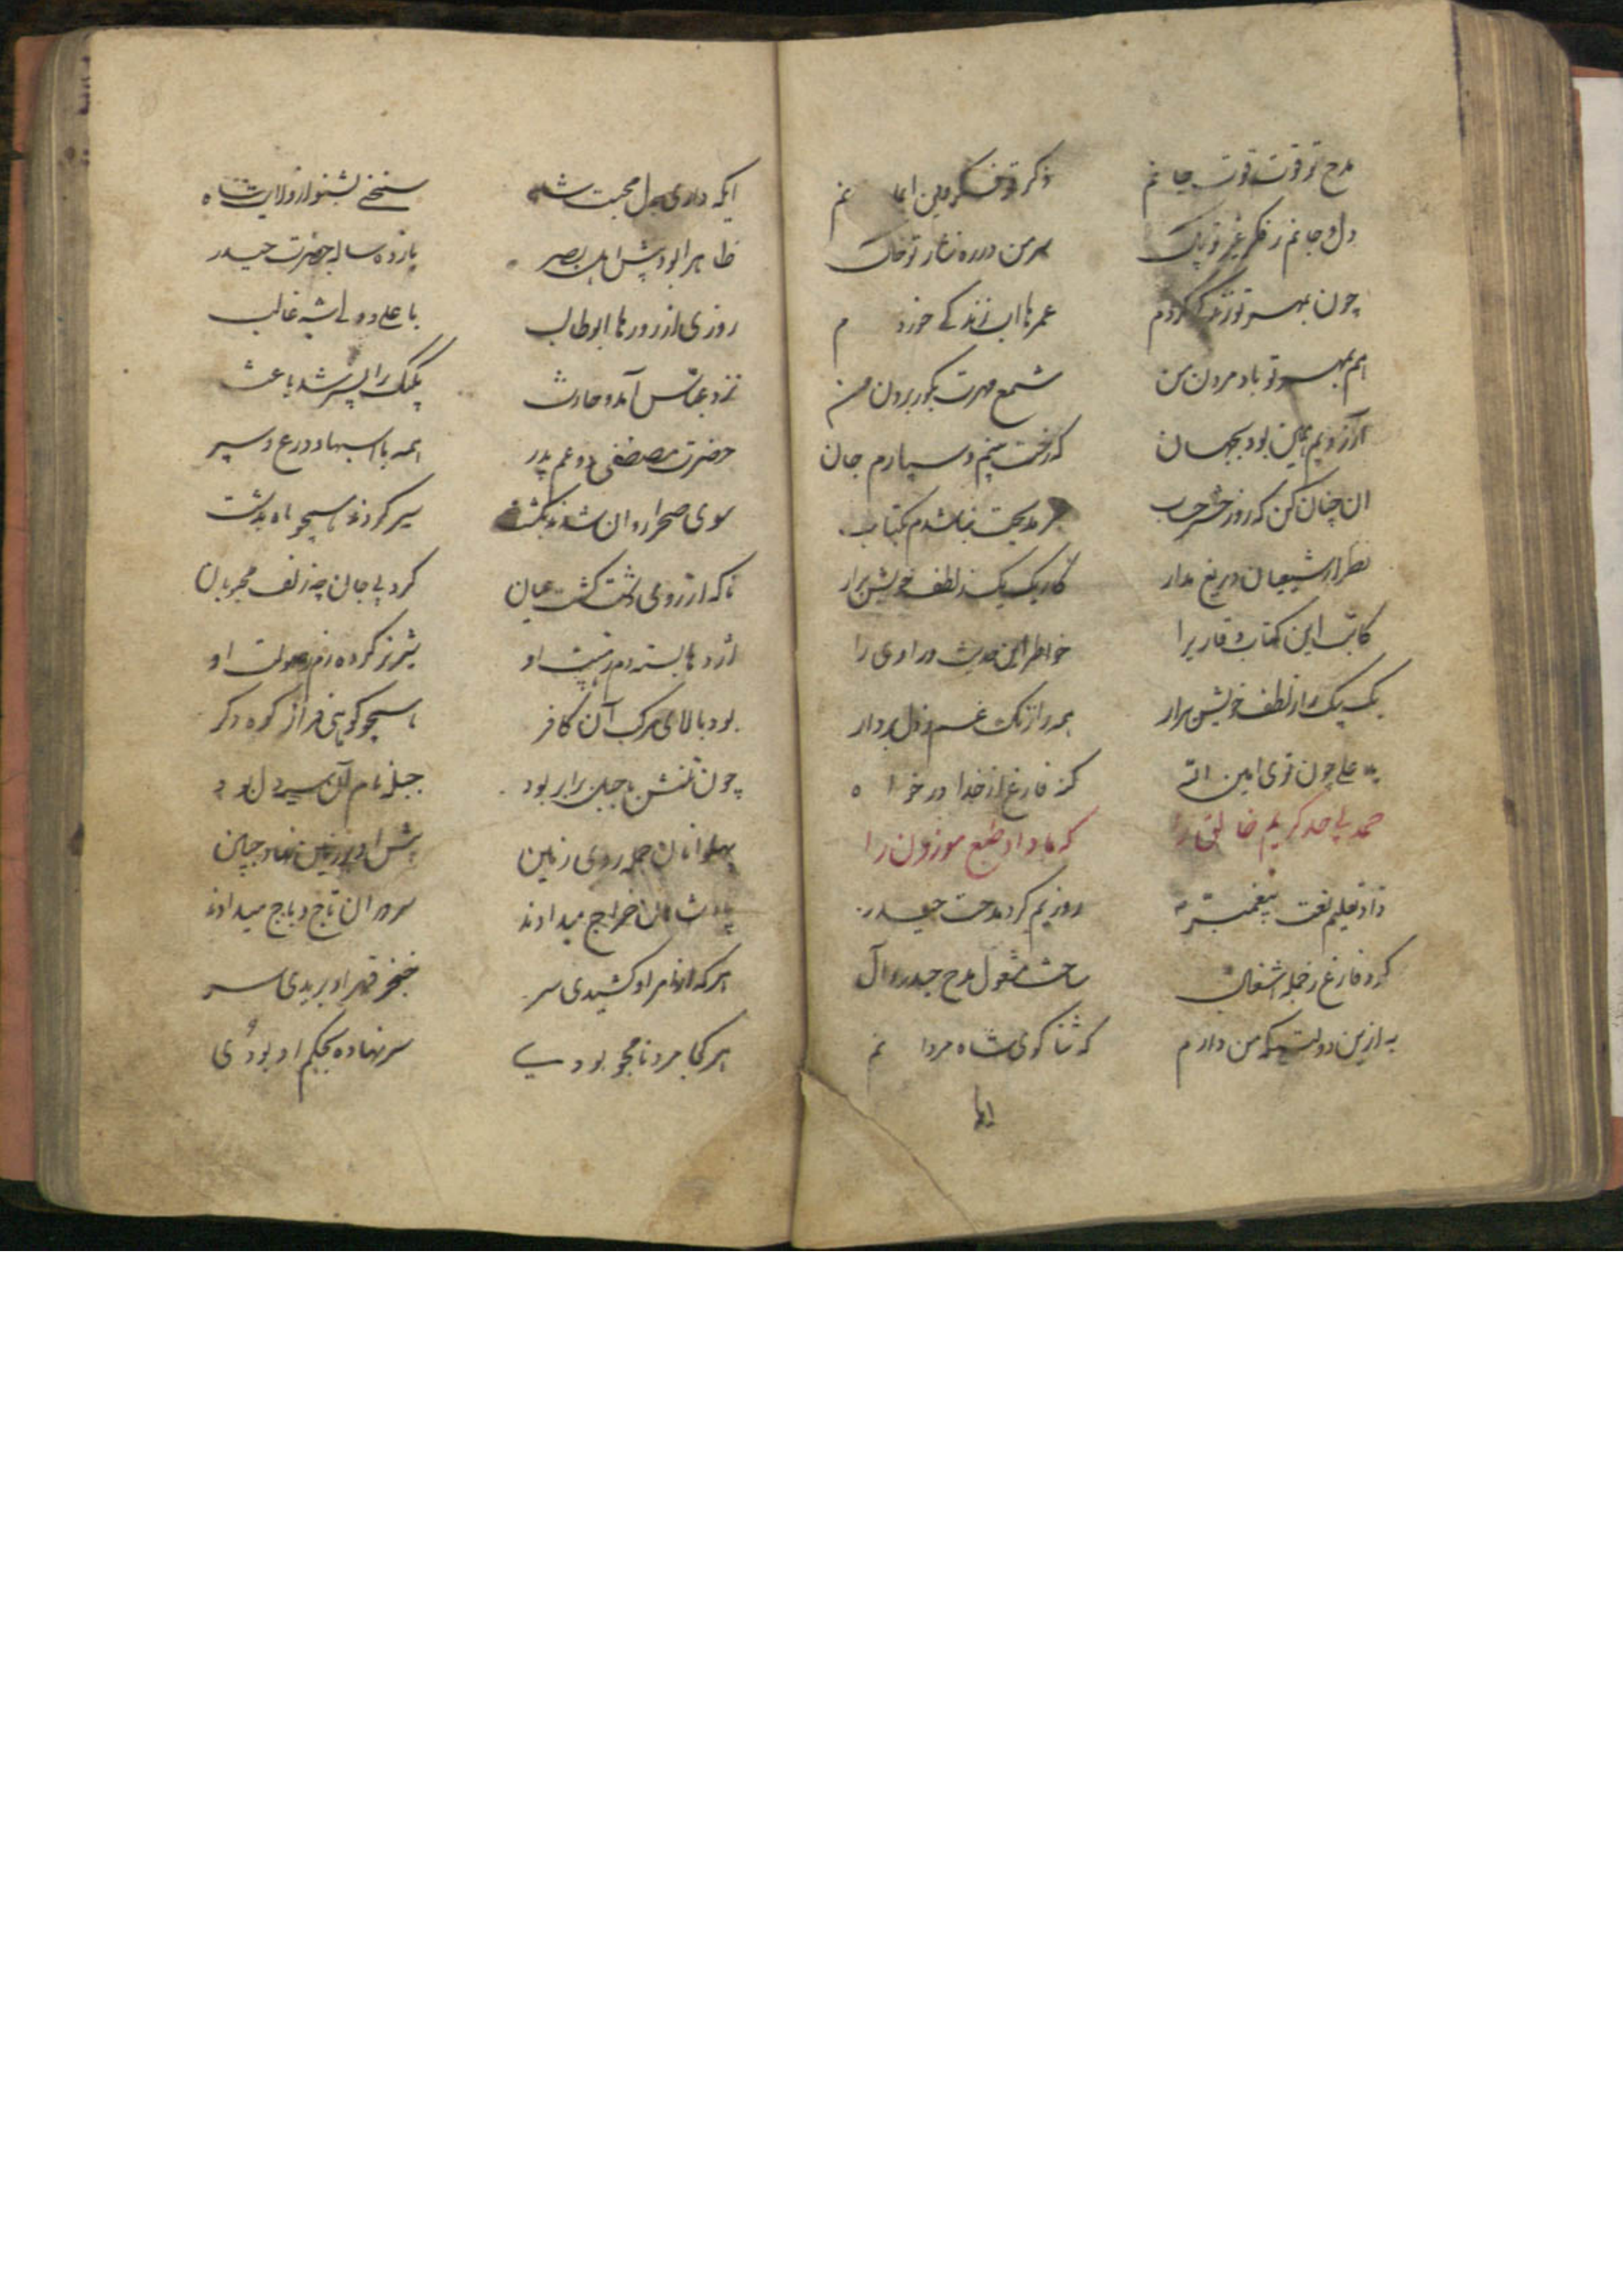 مدح تو قوت قوت جانم ذکر تو فکر دین ایمانم
دل و جانم ز فکر غیر تو پاک سر من در ره نثار تو خاک
چون بمهر تو زندگی کردم عمرها اب زندگے خوردم
هم بمهر تو باد مردن من شمع مهرت بکور بردن من
آرزویم همین بود بجهان که رخت بینم و سپارم جان
ان چنان کن که روز حشر حساب نباشدم بکتاب
نظر از شیعیان دریغ مدار کار یک یک ز لطف خویش برار
کاتب این کتاب و قاری را خواطر این حدیث و راوی را
یک بیک را ز لطف خویش برار همه را زنک غم ز دل بردار
به علے چون توی امین اله کز فارغ از خدا در خواه
حمد بی حد کریم خالق را که بما داد طبع موزون را
داد تعلیم نعت پیغمبر روزیم کرد مدحت حیدر
کرد فارغ ز جمله اشغال ساخت مشغول مدح حیدر و آل
به ازین دولتیکه من دارم که ثنا کوی شاه مردانم
ایکه داری بدل محبت شاه سخنے بشنو از ولایت شاه
ظاهرا بود پیش اهل بصر یازده ساله حضرت حیدر
روزی از روزها ابو طالب با علے ولے شه غالب
نزد عباس آمد و حارث یکیک را پسر شد باعث
حضرت مصطفی و دو عم پدر همه با اسبها و درع و سپر
سوی صحرا روان شدند بکشت سیر کردند همچو ماه بدشت
ناکه از روی دشت کشت عیان کرد بی جان چه زلف
اژدها بسته دم ز هیبت او شیر نر کرده رم ز صولت او
بود بالای مرکب آن کافر همچو کوهی فراز کوه دکر
چون تنش با جبل برابر بود جبله نام آن سیه دل بود
پهلوانان جمله روی زمین پیش او بر زمین نهاد جبین
پادشاهان خراج میدادند سروران تاج و باج میدادند
هرکه از امر او کشیدی سر خنجر قهر او بریدی سر
هر کجا مرد نامجو بودے سر نهاده بحکم او بودی